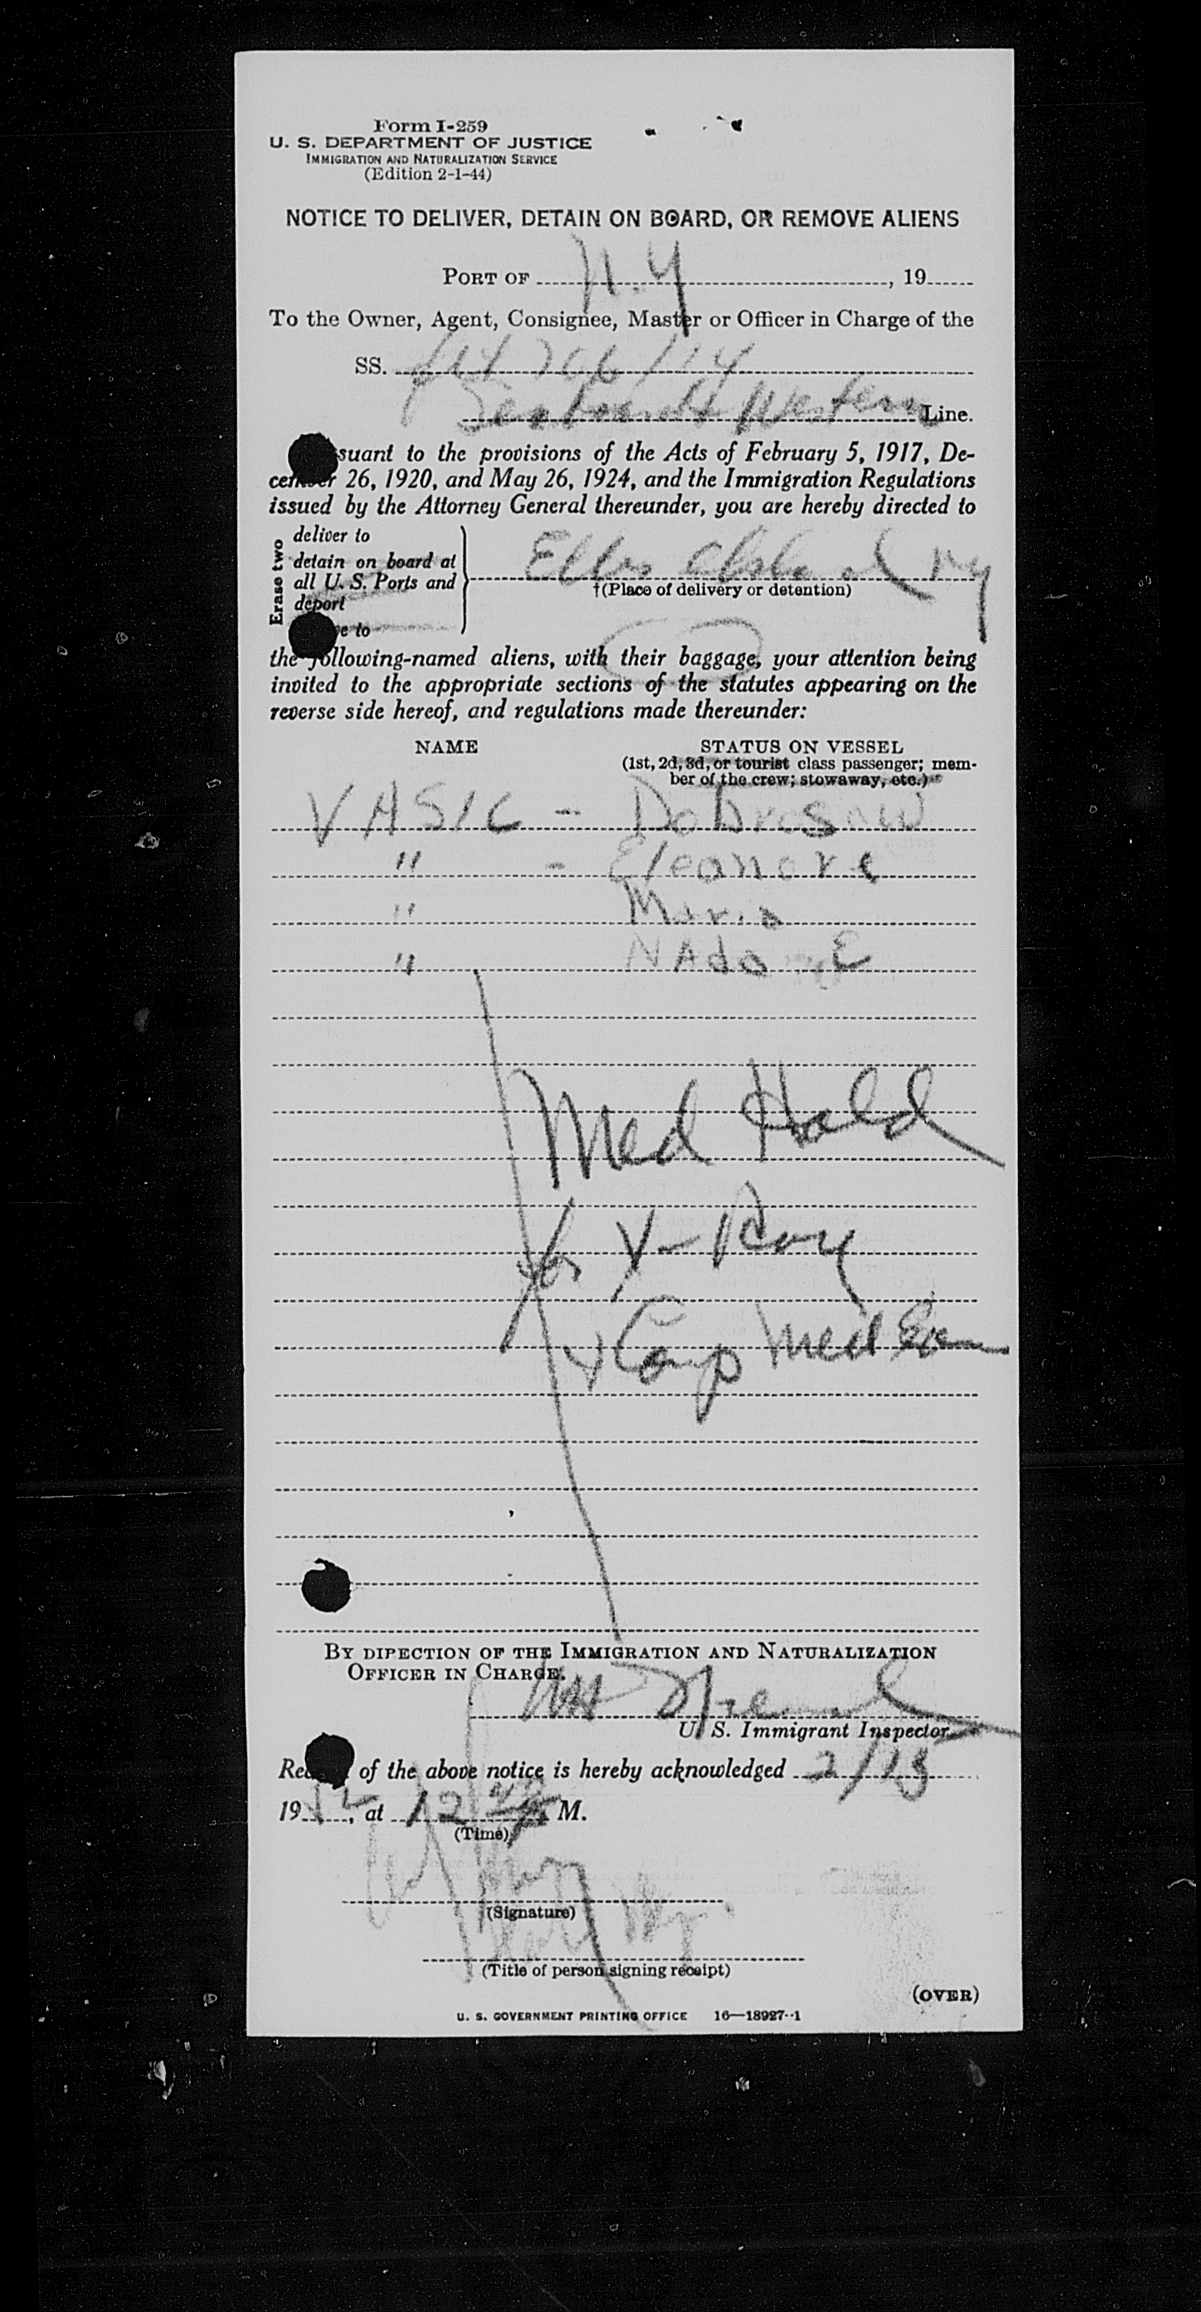 Form I-259
U. S. DEPARTMENT OF JUSTICE
IMMIGRATION AND NATURALIZATION SERVICE
(Edition 2-1-44)
NOTICE TO DELIVER, DETAIN ON BOARD, OR REMOVE ALIENS
PORT OF N.Y , 19
To the Owner, Agent, Consignee, Master or Officer in Charge of the
SS. flt
Western Line.
suant to the provisions of the Acts of February 5, 1917, De-
cember 26, 1920, and May 26, 1924, and the Immigration Regulations
issued by the Attorney General thereunder, you are hereby directed to
Erase two
deliver to
detain on board at
all U. S. Ports and
deport
e to
Ellis Island NY
†(Place of delivery or detention)
the following-named aliens, with their baggage, your attention being
invited to the appropriate sections of the statutes appearing on the
reverse side hereof, and regulations made thereunder:
NAME STATUS ON VESSEL
(1st, 2d, 3d, or tourist class passenger; mem-
ber of the crew; stowaway, etc.)
VASIC - Dobrosaw
" - Eleanore
" Maria
"
Med Hold
for X-Ray
+ Comp Med Exam
BY DIRECTION OF THE IMMIGRATION AND NATURALIZATION
OFFICER IN CHARGE.
U. S. Immigrant Inspector.
Re of the above notice is hereby acknowledged 2/13
1952, at 12 M.
(Time)
(Signature)
(Title of person signing receipt)
(OVER)
U. S. GOVERNMENT PRINTING OFFICE 16—18927-1